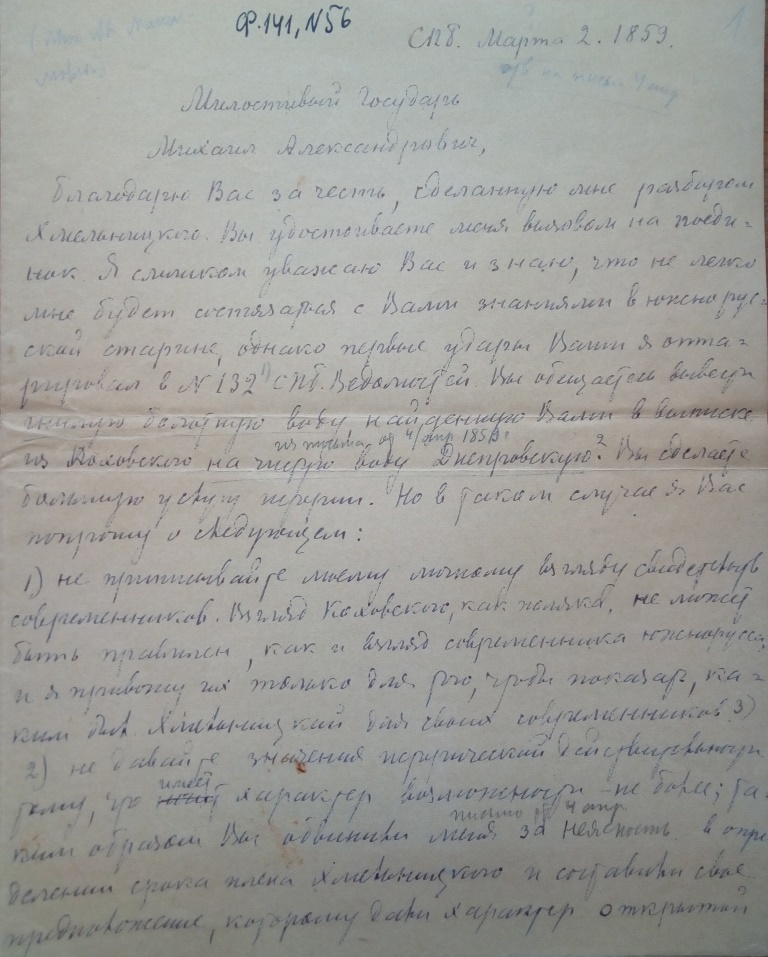 Ф.141, N56
1
СПб. Марта 2. 1859.
Милостивый Государь
Михаил Александрович,
Благодарю Вас за честь, сделанную мне разбором
Хмельницкого. Вы удостоиваете меня вызовом на поеди-
нок. Я слишком уважаю Вас и знаю, что не легко
мне будет состязаться с Вами знаниями в южнорус-
ской старине, однако первые удары Ваши я отпа-
рировал в N 132 1) СПб. Ведомостей. Вы обещаетесь вывести
гнилую болотную воду найденную Вами в выписке
из письма от 4 апр. 1859.
из Коховского на чистую воду Днепровскую? 2 Вы сделаете
большую услугу истории. Но в таком случае я Вас
попрошу о следующем:
1) не приписывайте моему личному взгляду свидетельств
современников. Взгляд Коховского, как поляка, не может
быть правилен, как и взгляд современника южнорусса,
и я привожу их только для того, чтобы показать, ка-
ким был Хмельницкий для своих современников. 3)
2) не давайте значения исторической действительности
имеет
тому, что характер возможности - не более; та-
письмо от 4 апр.
ким образом Вы обвинили меня за неясность в опре
делении срока плена Хмельницкого и составили свое
предположение, которому дали характер открытой